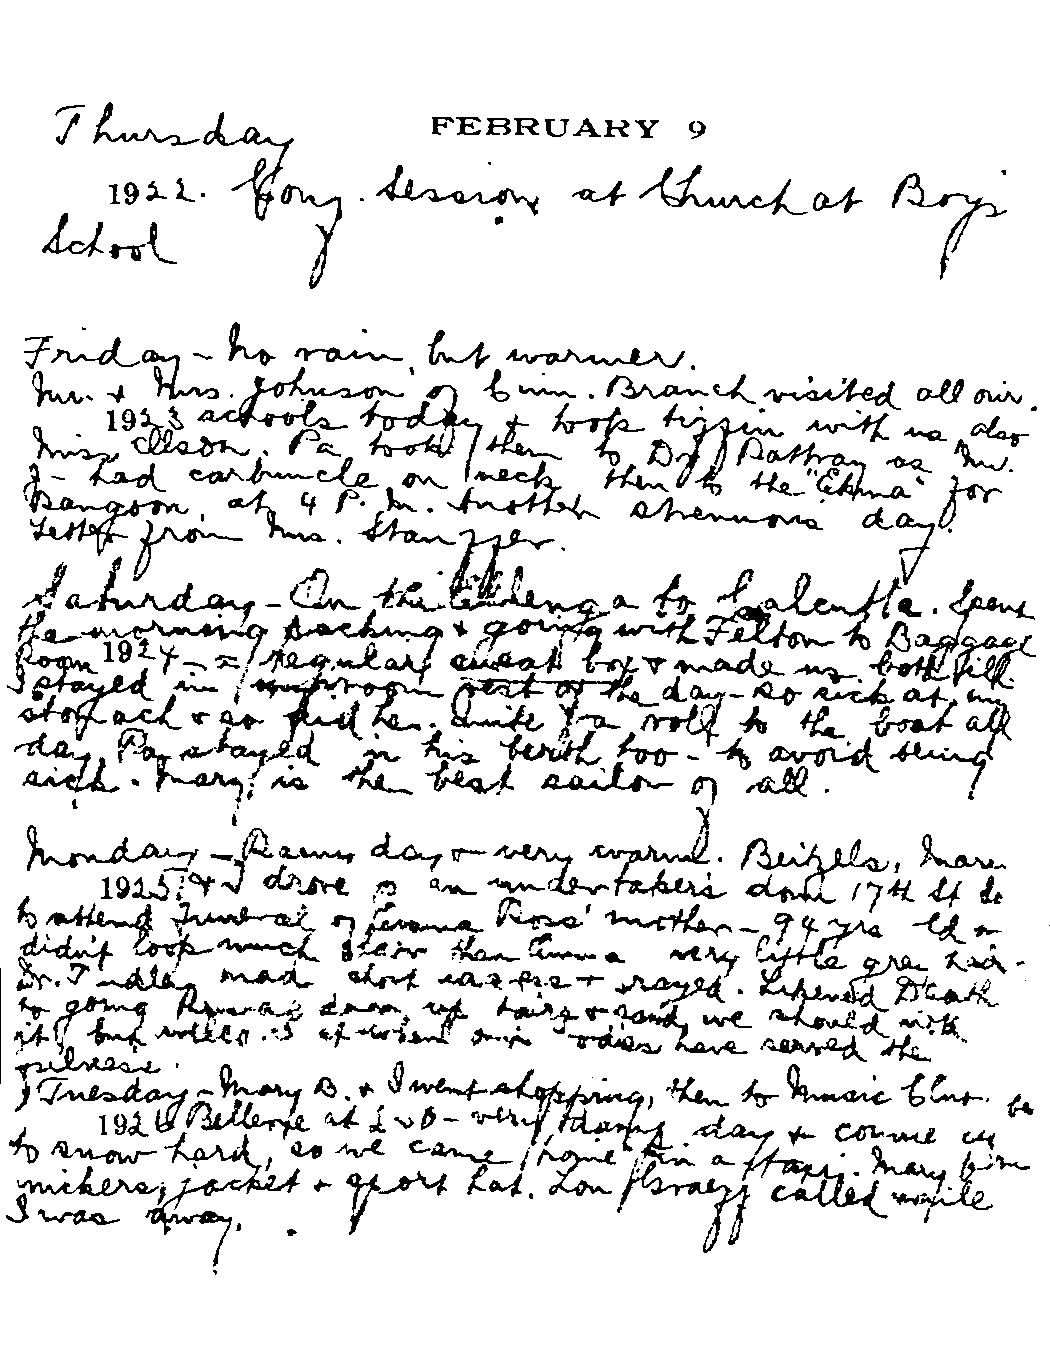 FEBRUARY 9
Thursday
1922. Cong. Session at Church at Boys
School
Friday - No rain, but warmer.
Mr. & Mrs. Johnson of Cinn. Branch visited all our
1923 schools today & took tiffin with us, also
Miss Elson. Pa took them to Dr. Rattray as Mr.
J - had carbuncle on neck then to the "Ekma" for
Rangoon, at 4 P.M. Another strenuous day.
Letter from Mrs. Stauffer.
Saturday - On the to Calcutta. Spent
the morning packing & going with Felton to Baggage
Room 1924 - a regular sweat box & made us both ill.
I stayed in room rest of the day - so sick at my
stomach & so did he. Quite a roll to the boat all
day. Pa stayed in his berth too - to avoid being
sick. Mary is the best sailor of all.
Monday - Rainy day & very warm. Beitzels,
1925 & I drove in an undertaker's down 17th St
to attend Funeral of Emma Ross' mother - 94 yrs old
didn't look much older than Emma very little grey hair.
Dr. made short & prayed. Likened Death
to going up stairs & said, we should
it, but when our bodies have served the

Tuesday - Mary B. & I went shopping, then to Music Club
1926 Bellevue at 2 - very damp day & comme
to snow hard, so we came home in a taxi. Mary
nickers, jacket & sport hat. Lou called while
I was away.